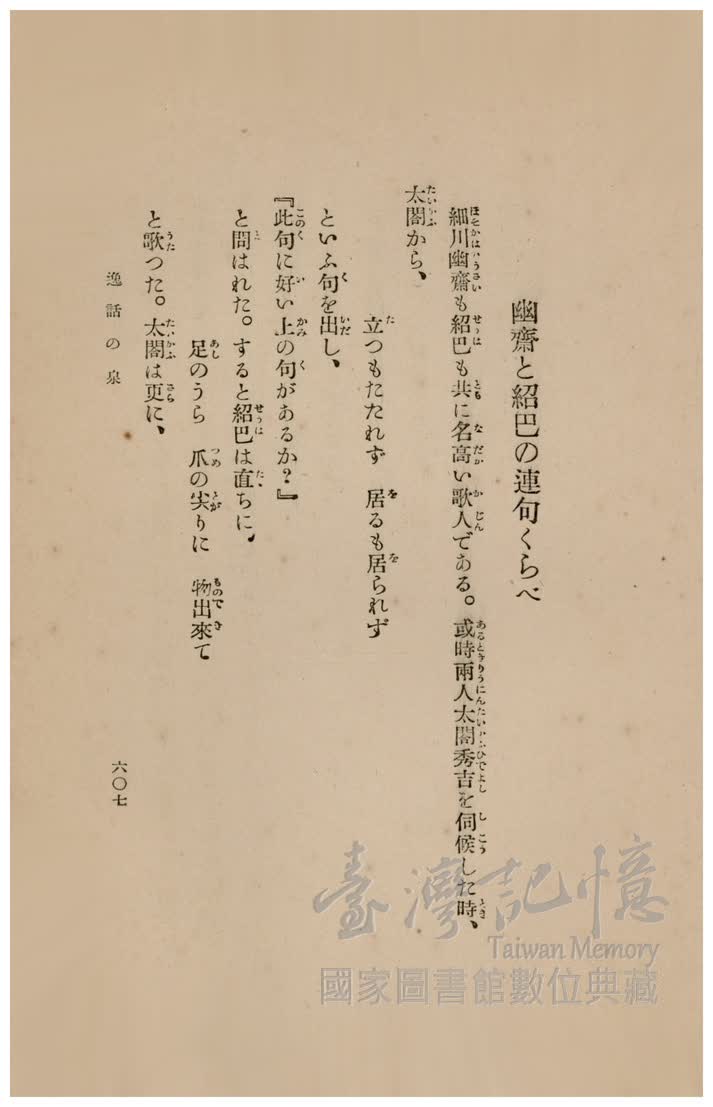 幽齋と紹巴の連句くらべ
細川幽齋も紹巴も共に名高い歌人である。或時兩人太閤秀吉を伺候した時、
太閤から、
立つもたたれず 居るも居られず
といふ句を出し、
『此句に好い上の句があるか?』
と問はれた。すると紹巴は直ちに、
足のうら 爪の尖りに 物出來て
と歌つた。太閤は更に、
逸話の泉
六〇七
臺灣記憶
Taiwan Memory
國家圖書館數位典藏